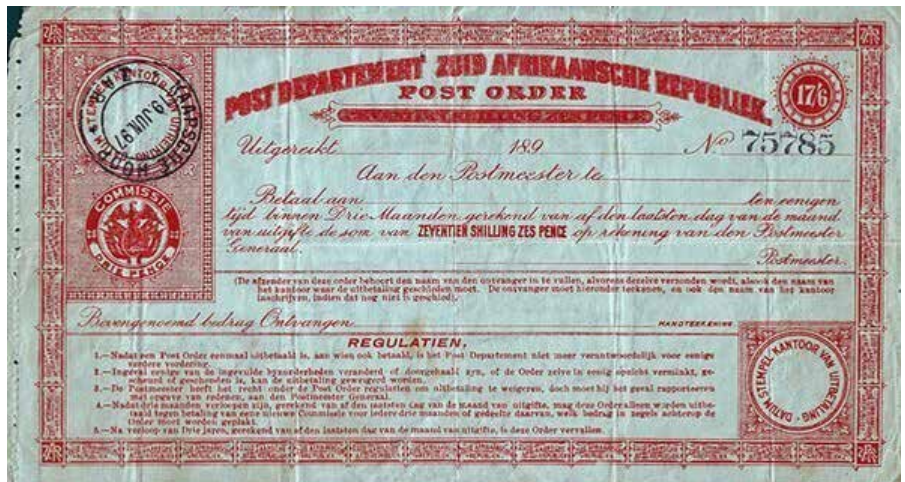 POST DEPARTEMENT ZUID AFRIKAANSCHE REPUBLIEK.
POST ORDER
17/6
KAAPSCHE HOOP
9.JUN.97
Z.A.R.
Uitgereikt 189
No 75785
Aan den Postmeester te
Betaal aan ten eenigen
tijd binnen Drie Maanden, gerekend van af den laatsten dag van de maand
van uitgifte de som van ZEVENTIEN SHILLING ZES PENCE op rekening van den Postmeester
Generaal.
Postmeester.
COMMISSIE
DRIE PENCE
(De afzender van deze order behoort den naam van den ontvanger in te vullen, alvorens dezelve verzonden wordt, alsook den naam van
het kantoor waar de uitbetaling geschieden moet. De ontvanger moet hieronder teekenen, en ook den naam van het kantoor
inschrijven, indien dat nog niet is geschied).
Bovengenoemd bedrag Ontvangen
HANDTEEKENING
REGULATIEN,
1.—Nadat een Post Order eenmaal uitbetaald is, aan wien ook betaald, is het Post Departement niet meer verantwoordelijk voor eenige
verdere vordering.
2.—Ingeval eenige van de ingevulde byzonderheden veranderd of doorgehaald zyn, of de Order zelve in eenig opzicht vermaakt, ge-
scheurd of geschonden is, kan de uitbetaling geweigerd worden.
3.—De Postmeester heeft het recht onder de Post Order regulatien een uitbetaling te weigeren, doch moet hij het geval rapporteeren
met opgave van redenen, aan den Postmeester Generaal.
4.—Nadat drie maanden verloopen zijn, gerekend van af den laatsten dag van de maand van uitgifte, mag deze Order alleen worden uitbe-
taald tegen betaling van eene nieuwe Commissie voor iedere drie maanden of gedeelte daarvan, welk bedrag in zegels achterop de
Order moet worden geplakt.
5.—Na verloop van Drie jaren, gerekend van af den laatsten dag van de maand van uitgifte, is deze Order vervallen.
DATUM STEMPEL KANTOOR VAN UITBETALING